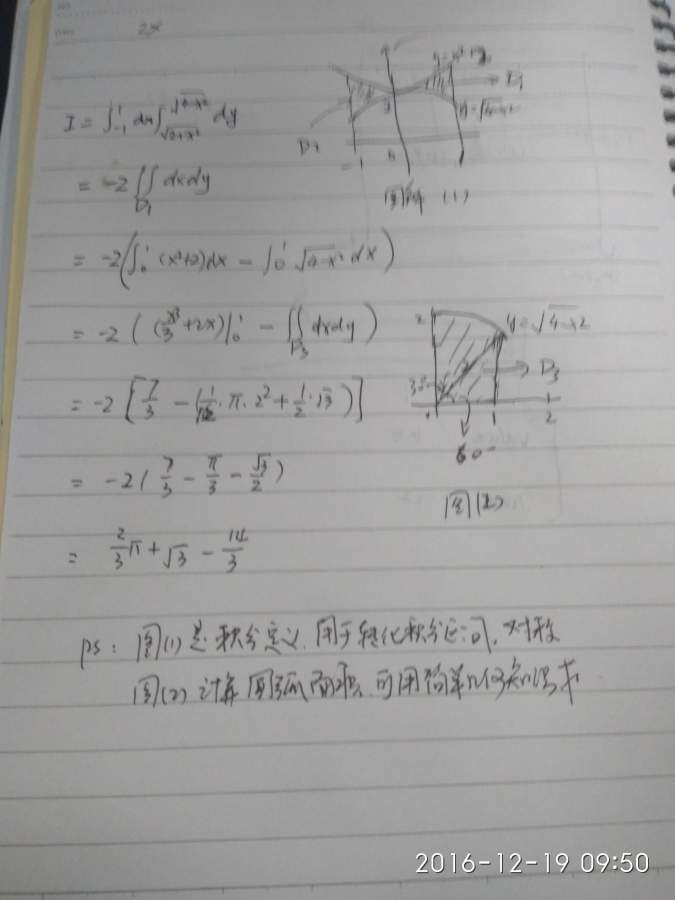 2x
I = ∫₋₁¹ dx ∫_{√(2+x²)}^{√(4-x²)} dy
= -2 ∬_{D₁} dxdy
= -2(∫₀¹ (x²+2)dx - ∫₀¹ √(4-x²) dx)
= -2 ((x³/3 + 2x)|₀¹ - ∬_{D₃} dxdy)
= -2 [7/3 - (1/12 · π · 2² + 1/2 · √3)]
= -2 (7/3 - π/3 - √3/2)
= 2/3 π + √3 - 14/3
D₁
y=√(4-x²)
D₂
-1
1
(1)
2
y=√(4-x²)
D₃
1
2
60°
图(2)
ps: 图(1)是积分定义, 用于转化积分区间, 对称
图(2)计算圆弧面积, 可用简单几何知识求.
2016-12-19 09:50